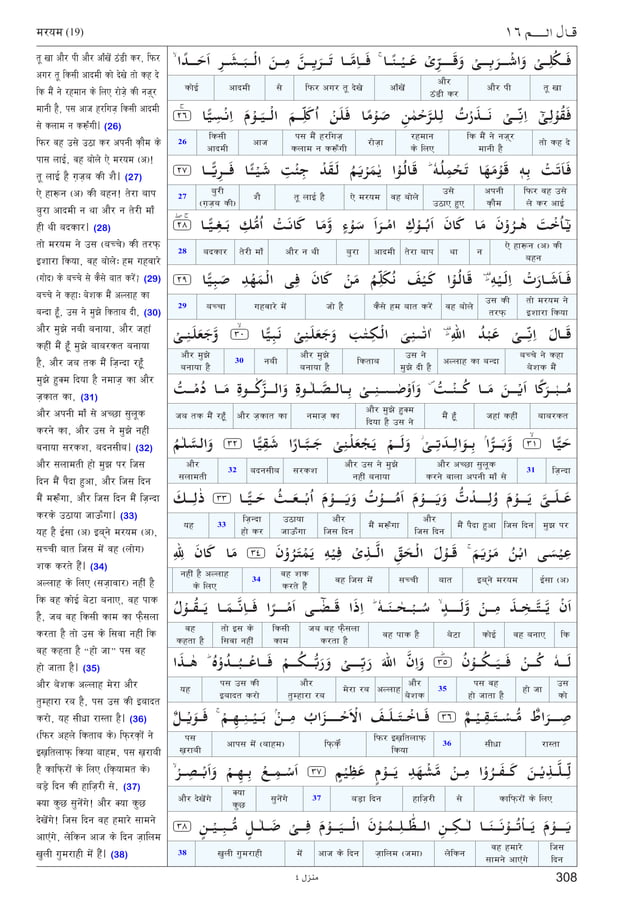 मरयम (19)
قال الـم ١٦
तू खा और पी और आँखें ठंडी कर, फिर
अगर तू किसी आदमी को देखे तो कह दे
कि मैं ने रहमान के लिए रोज़े की नज़्र
मानी है, पस आज हरगिज़ किसी आदमी
से कलाम न करूँगी। (26)
फिर वह उसे उठा कर अपनी क़ौम के
पास लाई, वह बोले ऐ मरयम (अ)!
तू लाई है ग़ज़ब की शै। (27)
ऐ हारून (अ) की बहन! तेरा बाप
बुरा आदमी न था और न तेरी माँ
ही थी बदकार। (28)
तो मरयम ने उस (बच्चे) की तरफ़
इशारा किया, वह बोलेः हम गहवारे
(गोद) के बच्चे से कैसे बात करें? (29)
बच्चे ने कहाः बेशक मैं अल्लाह का
बन्दा हूँ, उस ने मुझे किताब दी, (30)
और मुझे नबी बनाया, और जहां
कहीं मैं हूँ मुझे बाबरकत बनाया
है, और जब तक मैं ज़िन्दा रहूँ
मुझे हुक्म दिया है नमाज़ का और
ज़कात का, (31)
और अपनी माँ से अच्छा सुलूक
करने का, और उस ने मुझे नहीं
बनाया सरकश, बदनसीब। (32)
और सलामती हो मुझ पर जिस
दिन मैं पैदा हुआ, और जिस दिन
मैं मरूँगा, और जिस दिन मैं ज़िन्दा
करके उठाया जाऊँगा। (33)
यह है ईसा (अ) इब्ने मरयम (अ),
सच्ची बात जिस में वह (लोग)
शक करते हैं। (34)
अल्लाह के लिए (सज़ावार) नहीं है
कि वह कोई बेटा बनाए, वह पाक
है, जब वह किसी काम का फ़ैसला
करता है तो उस के सिवा नहीं कि
वह कहता है "हो जा" पस वह
हो जाता है। (35)
और बेशक अल्लाह मेरा और
तुम्हारा रब है, पस उस की इबादत
करो, यह सीधा रास्ता है। (36)
(फिर अहले किताब के) फ़िरक़ों ने
इख़्तिलाफ़ किया बाहम, पस ख़राबी
है काफ़िरों के लिए (क़ियामत के)
बड़े दिन की हाज़िरी से, (37)
क्या कुछ सुनेंगे! और क्या कुछ
देखेंगे! जिस दिन वह हमारे सामने
आएंगे, लेकिन आज के दिन ज़ालिम
खुली गुमराही में हैं। (38)
فَكُلِىْ وَاشْرَبِىْ وَقَرِّىْ عَيْنًا ۚ فَاِمَّا تَرَيِنَّ مِنَ الْبَشَرِ اَحَدًا ۙ
तू खा और पी और ठंडी कर आँखें फिर अगर तू देखे से आदमी कोई
فَقُوْلِىْٓ اِنِّىْ نَذَرْتُ لِلرَّحْمٰنِ صَوْمًا فَلَنْ اُكَلِّمَ الْيَوْمَ اِنْسِيًّا ۚ ٢٦
तो कह दे कि मैं ने नज़्र मानी है रहमान के लिए रोज़ा पस मैं हरगिज़ कलाम न करूँगी आज किसी आदमी 26
فَاَتَتْ بِهٖ قَوْمَهَا تَحْمِلُهٗ ؕ قَالُوْا يٰمَرْيَمُ لَقَدْ جِئْتِ شَيْئًا فَرِيًّا ٢٧
फिर वह उसे ले कर आई अपनी क़ौम उसे उठाए हुए वह बोले ऐ मरयम तू लाई है शै बुरी (ग़ज़ब की) 27
يٰٓاُخْتَ هٰرُوْنَ مَا كَانَ اَبُوْكِ امْرَاَ سَوْءٍ وَّمَا كَانَتْ اُمُّكِ بَغِيًّا ٢٨
ऐ हारून (अ) की बहन न था तेरा बाप आदमी बुरा और न थी तेरी माँ बदकार 28
فَاَشَارَتْ اِلَيْهِ ؕ قَالُوْا كَيْفَ نُكَلِّمُ مَنْ كَانَ فِى الْمَهْدِ صَبِيًّا ٢٩
तो मरयम ने इशारा किया उस की तरफ़ वह बोले कैसे हम बात करें जो है गहवारे में बच्चा 29
قَالَ اِنِّىْ عَبْدُ اللّٰهِ ؕ اٰتٰنِىَ الْكِتٰبَ وَجَعَلَنِىْ نَبِيًّا ٣٠ وَّجَعَلَنِىْ
बच्चे ने कहा बेशक मैं अल्लाह का बन्दा उस ने मुझे दी है किताब और मुझे बनाया है नबी 30 और मुझे बनाया है
مُبٰرَكًا اَيْنَ مَا كُنْتُ ۪ وَاَوْصٰنِىْ بِالصَّلٰوةِ وَالزَّكٰوةِ مَا دُمْتُ
बाबरकत जहां कहीं मैं हूँ और मुझे हुक्म दिया है उस ने नमाज़ का और ज़कात का जब तक मैं रहूँ
حَيًّا ٣١ وَّبَرًّا ۢ بِوَالِدَتِىْ وَلَمْ يَجْعَلْنِىْ جَبَّارًا شَقِيًّا ٣٢ وَالسَّلٰمُ
ज़िन्दा 31 और अच्छा सुलूक करने वाला अपनी माँ से और उस ने मुझे नहीं बनाया सरकश बदनसीब 32 और सलामती
عَلَىَّ يَوْمَ وُلِدْتُّ وَيَوْمَ اَمُوْتُ وَيَوْمَ اُبْعَثُ حَيًّا ٣٣ ذٰلِكَ
मुझ पर जिस दिन मैं पैदा हुआ और जिस दिन मैं मरूँगा और जिस दिन उठाया जाऊँगा ज़िन्दा हो कर 33 यह
عِيْسَى ابْنُ مَرْيَمَ ۚ قَوْلَ الْحَقِّ الَّذِىْ فِيْهِ يَمْتَرُوْنَ ٣٤ مَا كَانَ لِلّٰهِ
ईसा (अ) इब्ने मरयम बात सच्ची वह जिस में वह शक करते हैं 34 नहीं है अल्लाह के लिए
اَنْ يَّتَّخِذَ مِنْ وَّلَدٍ ۙ سُبْحٰنَهٗ ؕ اِذَا قَضٰٓى اَمْرًا فَاِنَّمَا يَقُوْلُ
कि वह बनाए कोई बेटा वह पाक है जब वह फ़ैसला करता है किसी काम तो इस के सिवा नहीं वह कहता है
لَهٗ كُنْ فَيَكُوْنُ ؕ ٣٥ وَاِنَّ اللّٰهَ رَبِّىْ وَرَبُّكُمْ فَاعْبُدُوْهُ ؕ هٰذَا
उस को हो जा पस वह हो जाता है 35 और बेशक अल्लाह मेरा रब और तुम्हारा रब पस उस की इबादत करो यह
صِرَاطٌ مُّسْتَقِيْمٌ ٣٦ فَاخْتَلَفَ الْاَحْزَابُ مِنْۢ بَيْنِهِمْ ۚ فَوَيْلٌ
रास्ता सीधा 36 फिर इख़्तिलाफ़ किया फ़िर्क़े आपस में (बाहम) पस ख़राबी
لِّلَّذِيْنَ كَفَرُوْا مِنْ مَّشْهَدِ يَوْمٍ عَظِيْمٍ ٣٧ اَسْمِعْ بِهِمْ وَاَبْصِرْ ۙ
काफ़िरों के लिए से हाज़िरी बड़ा दिन 37 सुनेंगे क्या कुछ और देखेंगे
يَوْمَ يَاْتُوْنَنَا لٰكِنِ الظّٰلِمُوْنَ الْيَوْمَ فِىْ ضَلٰلٍ مُّبِيْنٍ ٣٨
जिस दिन वह हमारे सामने आएंगे लेकिन ज़ालिम (जमा) आज के दिन में खुली गुमराही 38
منزل ٤
308